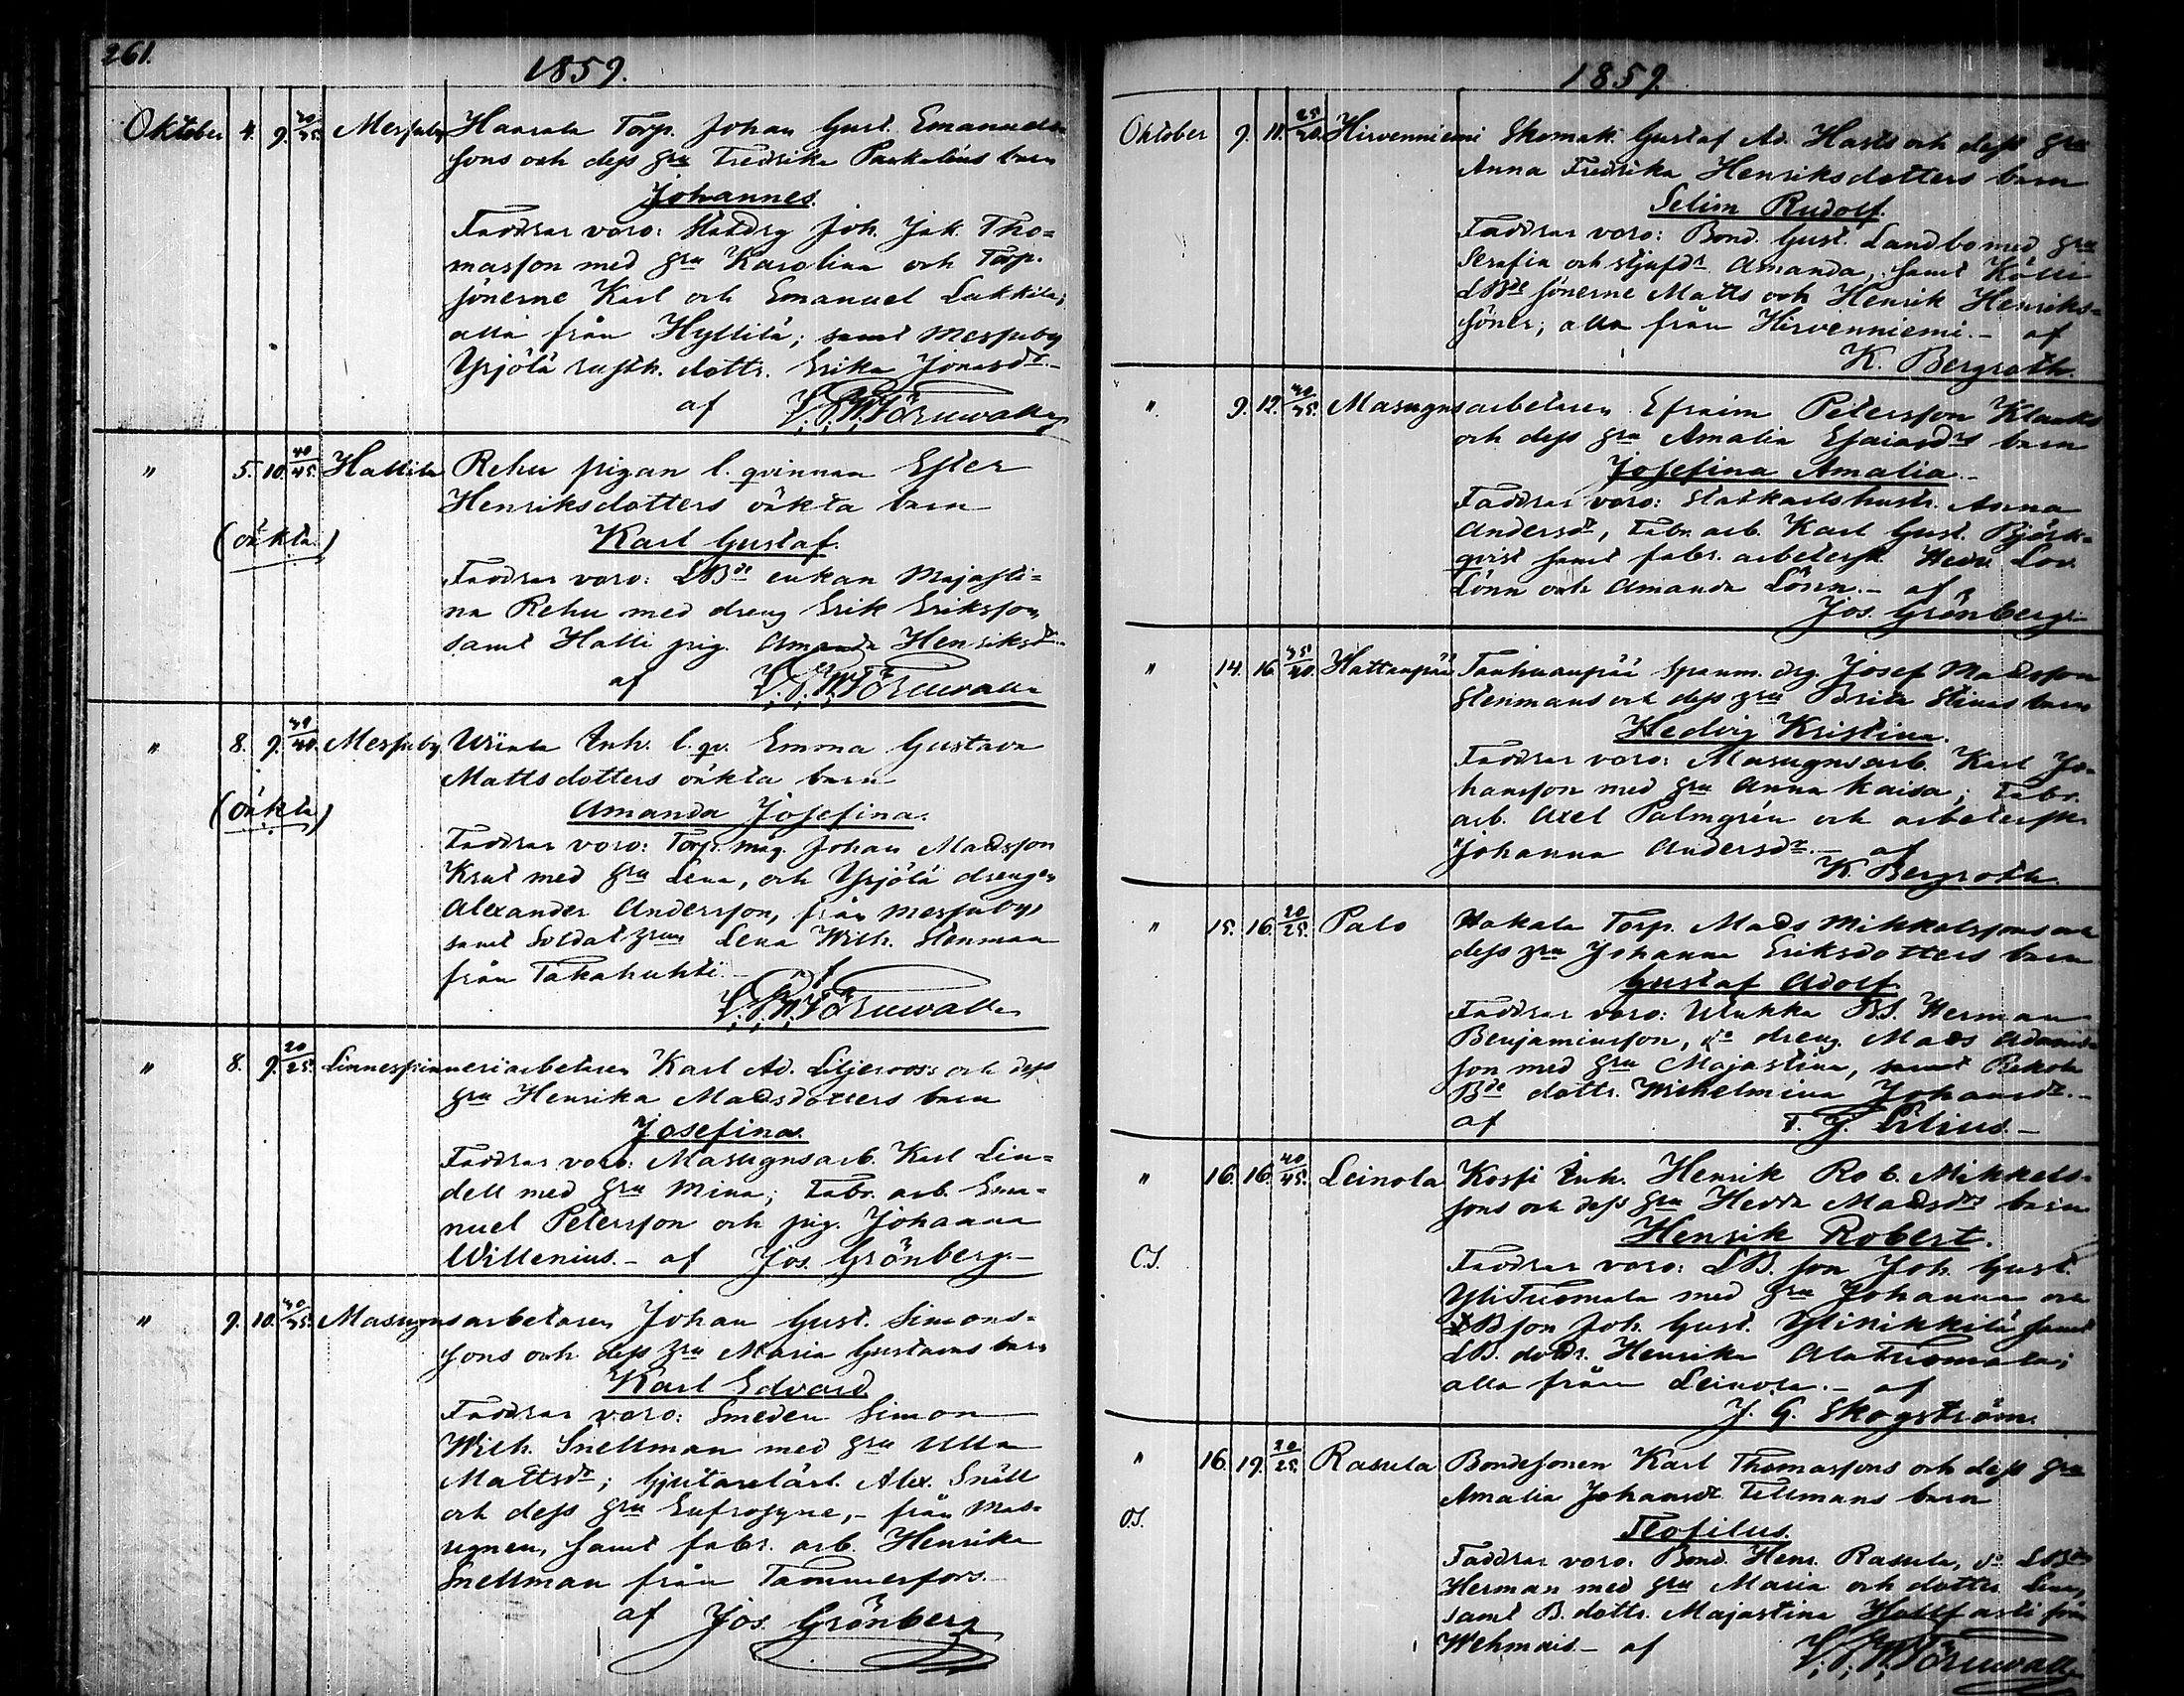 261.
1859.
Oktober 4. 9. 40/45. Messuby Haarala Torp. Johan Gust. Emanuels-
sons och dess hru Fredrika Paukalius barn
Johannes.
Faddrar voro: Statdrg Joh. Jak. Tho=
masson med hru Karolina och Torp.
sönerne Karl och Emanuel Lukkila;
alla från Hyllilä; samt Messuby
Yrjölä rusth. dottr. Erika Jonasdr.-
af
" 5. 10. 40/45. Hallila Rehu pigan l. qvinnan Ester
Henriksdotters oäkta barn
(oäkta.) Karl Gustaf.
Faddrar voro: LBde enkan Majasti=
na Rehu med dreng Erik Eriksson,
samt Halli pig. Amanda Henriksdr.-
af
" 8. 9. /40. Messuby Inh. l. qv. Emma Gustava
Mattsdotters oäkta barn
(oäkta) Amanda Josefina.
Faddrar voro: Torp. mag. Johan Madsson
Krut med hru Lena, och Yrjölä drengen
Alexander Andersson, från Messuby,
samt Soldat hrun Lena Wilh. Stenman
från Takahuhti.- af
" 8. 9. 20/25. Linnespinneriarbetaren Karl Ad. Liljeroos och dess
hru Henrika Madsdotters barn
Josefina.
Faddrar voro: Masugnsarb. Karl Lin=
dell med hru Mina; Fabr. arb. Ema=
nuel Petersson och pig. Johanna
Willenius.- af Jos. Grönberg.-
" 9. 10. Masugnsarbetaren Johan Gust. Simons=
sons och dess hru Maria Gustavas barn
Karl Edvard
Faddrar voro: Smeden Simon
Wilh. Snellman med hru Ulla
Mattsdr; Gjutarelärl. Alex. Snäll
och dess hru Eufrosyne,- från Mas=
ugnen, samt fabr. arb. Henrika
Snellman från Tammerfors.-
af Jos. Grönberg
1859.
Oktober 9. 11. 25/20. Hirvenniemi Skomak. Gustaf Ad. Hasts och dess hru
Anna Fredrika Henriksdotters barn
Selim Rudolf.
Faddrar voro: Bond. Gust. Landbo med hru
Serafia och stjufdr Amanda, samt Kölli
LBde sönerne Matts och Henrik Henriks=
söner; alla från Hirvenniemi.- af
K. Bergroth.
". 9. 12. Masugnsarbetaren Efraim Petersson
och dess hru Amalia Esaiasdrs barn
Josefina Amalia.-
Faddrar voro: Statkarlshustr. Anna
Andersdr, Fabr. arb. Karl Gust. Björk=
qvist samt fabr. arbetersk. Hedv. Lov.
Lönn och Amanda Lönn.- af
Jos. Grönberg.-
" 14. 16. Hattanpää Tauhuanpää Spanm. drg. Josef Madsson
Stenmans och dess hru Brita Stinas barn
Hedvig Kristina.
Faddrar voro: Masugnsarb. Karl Jo=
hansson med hru Anna Kaisa; Fabr.
arb. Axel Palmgrén och arbeterskn
Johanna Andersdr.- af
K. Bergroth.
" 15. 16. 20/25. Palo Hakala Torp. Mads Mikkelssons och
dess hru Johanna Eriksdotters barn
Gustaf Adolf.
Faddrar voro: Ulukka BS. Herman
Benjaminsson, do dreng. Mads Adams
son med hru Majastina, samt Rekola
Bde dottr. Wilhelmina Johansdr.-
af F. J. Lilius.-
" 16. 16. 40/45. Leinola Kossi Inh. Henrik Rob. Mikkels-
sons och dess hru Hedda Madsdrs barn
Henrik Robert.
O.S. Faddrar voro: LB. son Joh. Gust.
YliTuomala med hru Johanna och
LBson Joh. Gust. Ylinikkilä samt
LB. dottr. Henrika AlaTuomala;
alla från Leinola.- af
J. G. Skogström.
" 16. 19. 20/25. Rasula Bondesonen Karl Thomassons och dess hru
Amalia Johansdr Tellmans barn
O.S. Teofilus.
Faddrar voro: Bond. Henr. Rasula, do LBde
Herman med hru Maria och dotter Lena,
samt B. dottr. Majastina Hallfasti från
Wehmais.- af